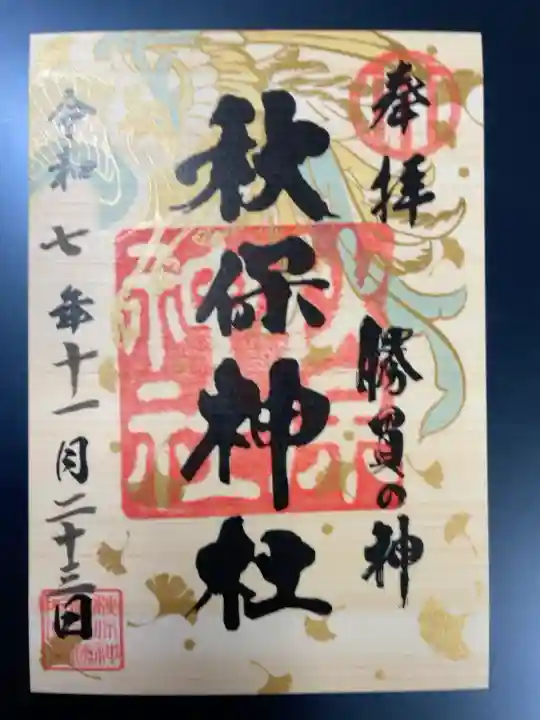 奉拝
勝負の神
秋保神社
令和七年十一月二十三日